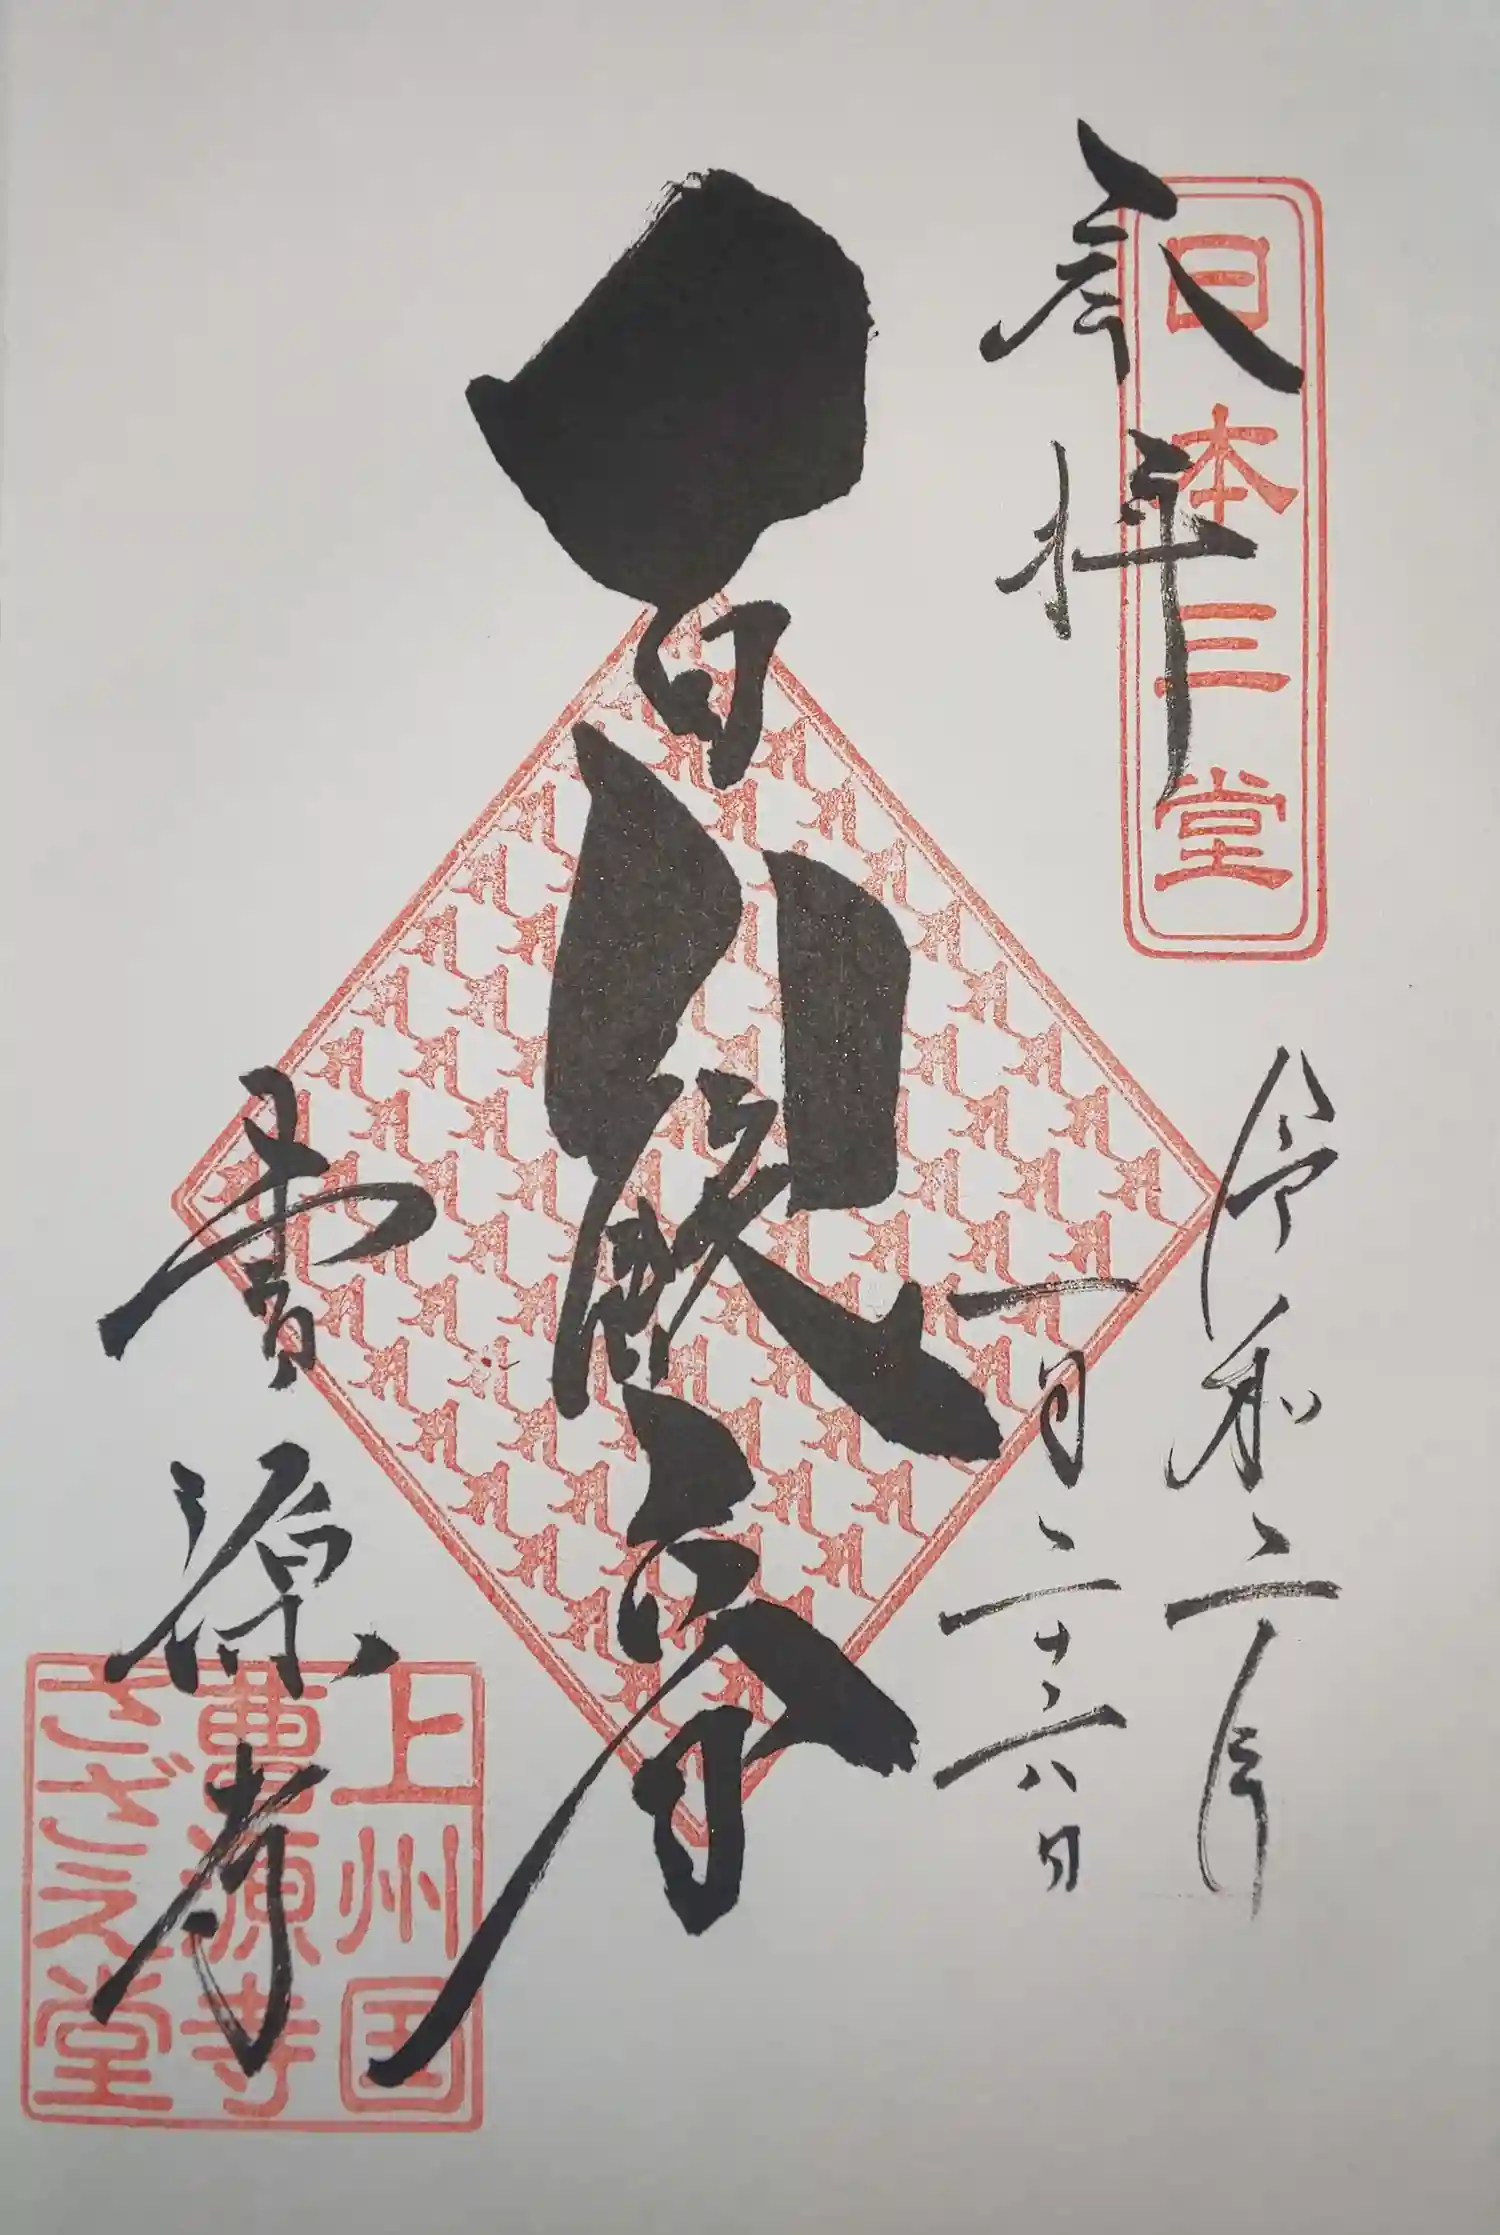 日本三堂
奉拝
令和二年
一月二十六日
曹源寺
上州国
曹源寺
さざえ堂